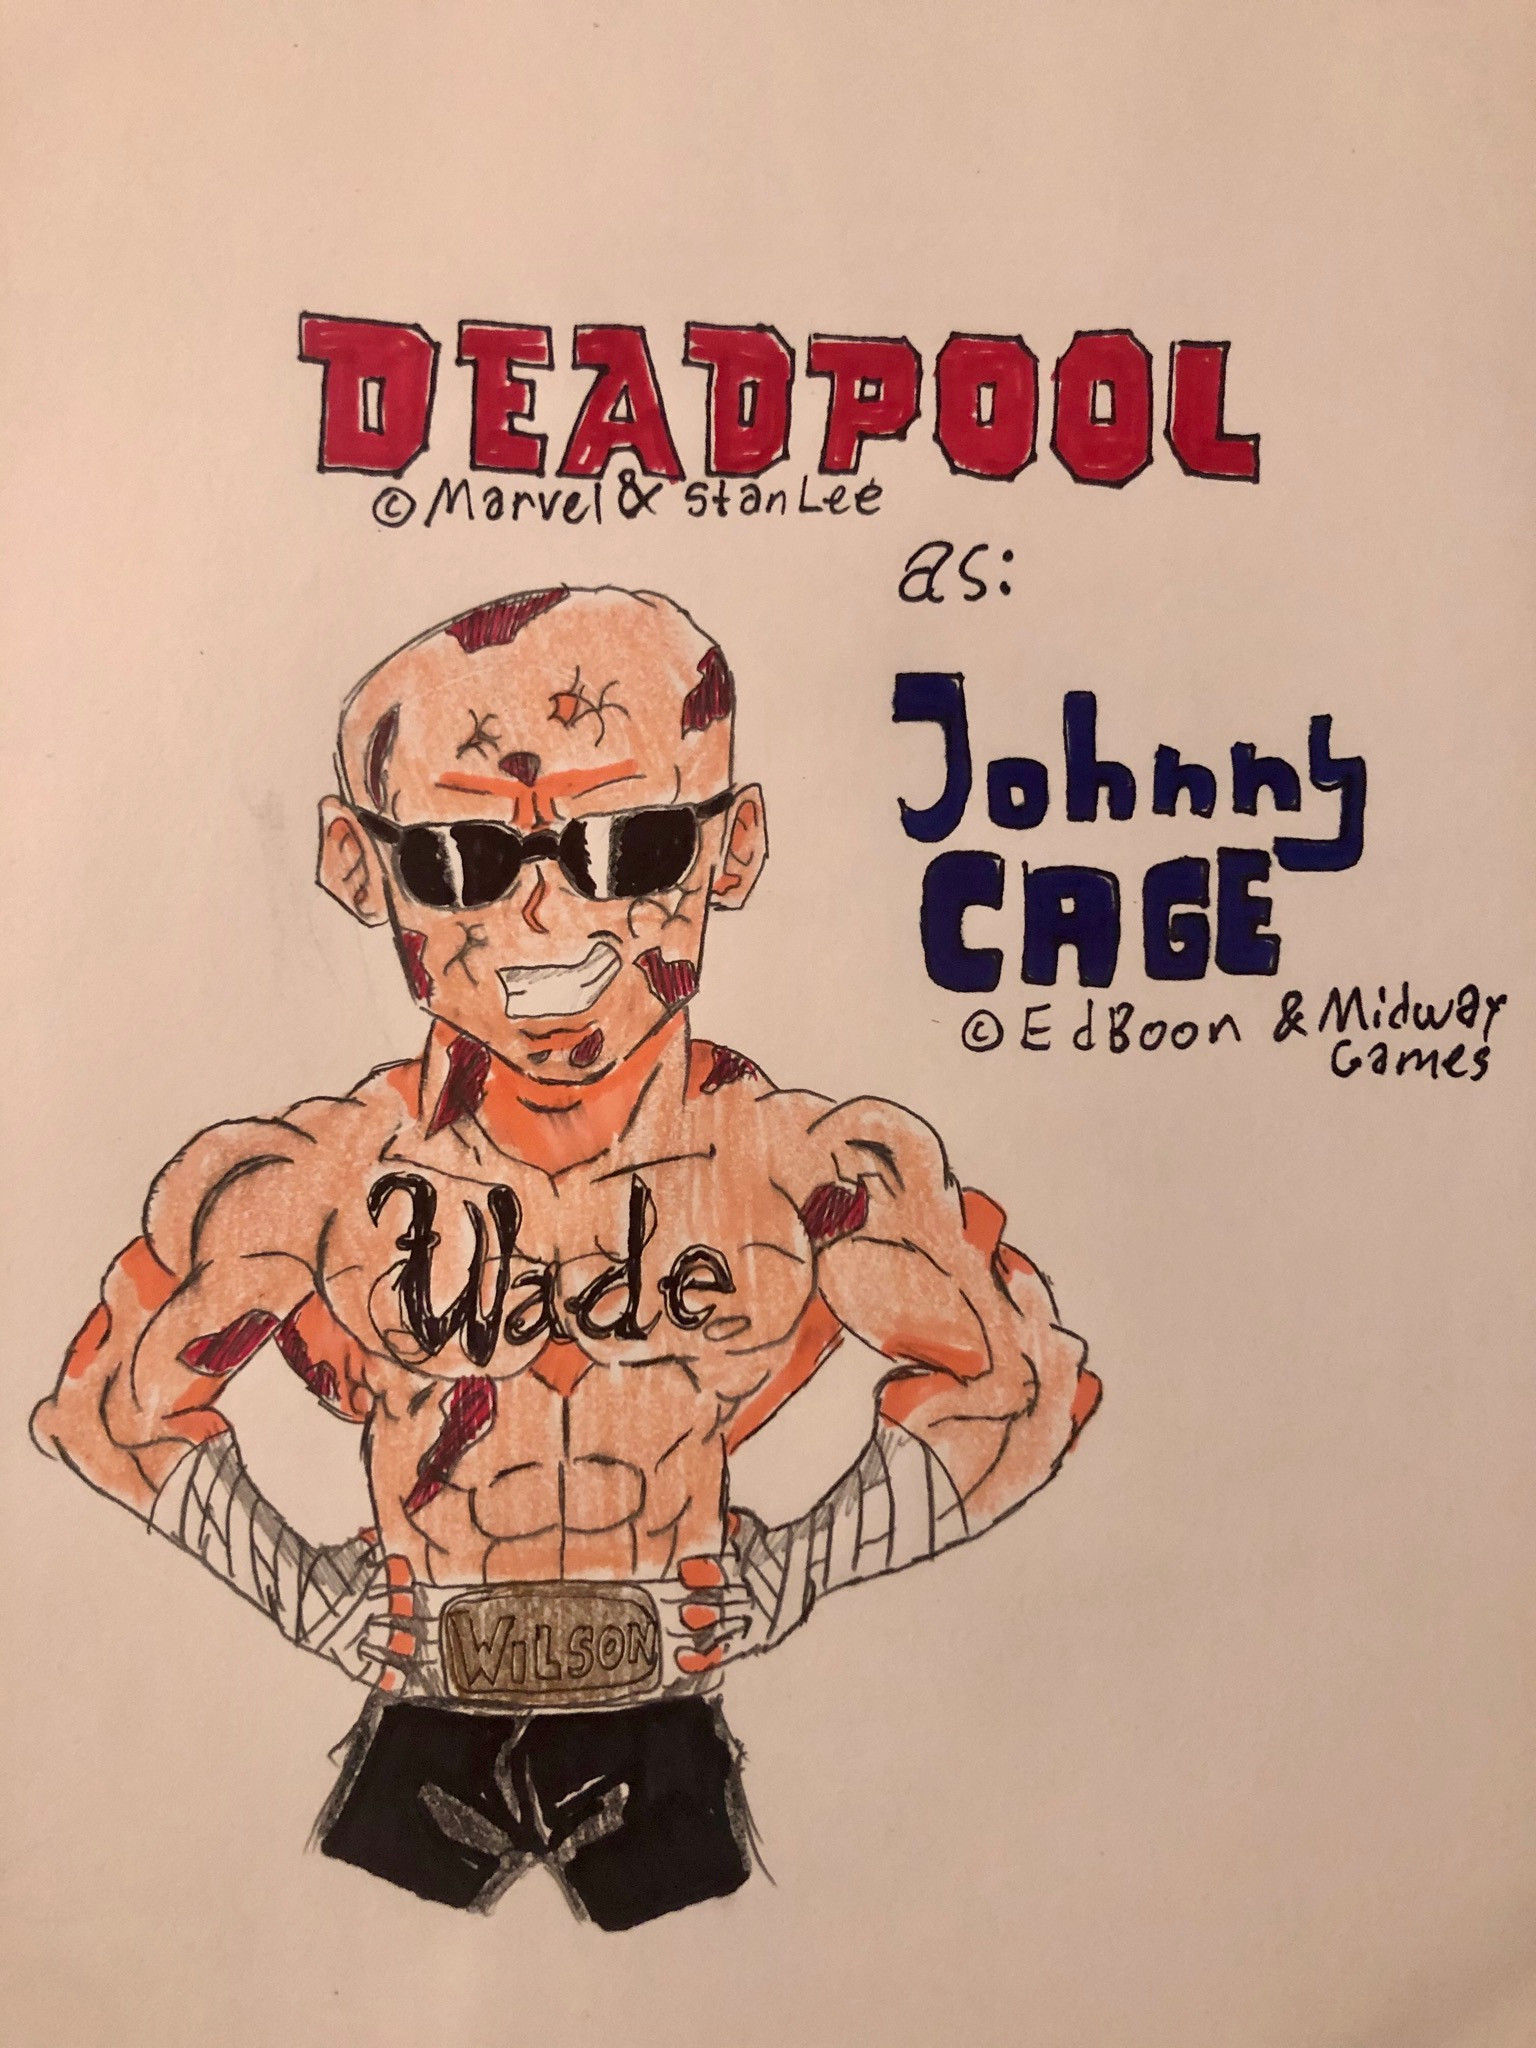 DEADPOOL
© Marvel & Stan Lee
as:
Johnny
CAGE
© Ed Boon & Midway
Games
Wade
WILSON